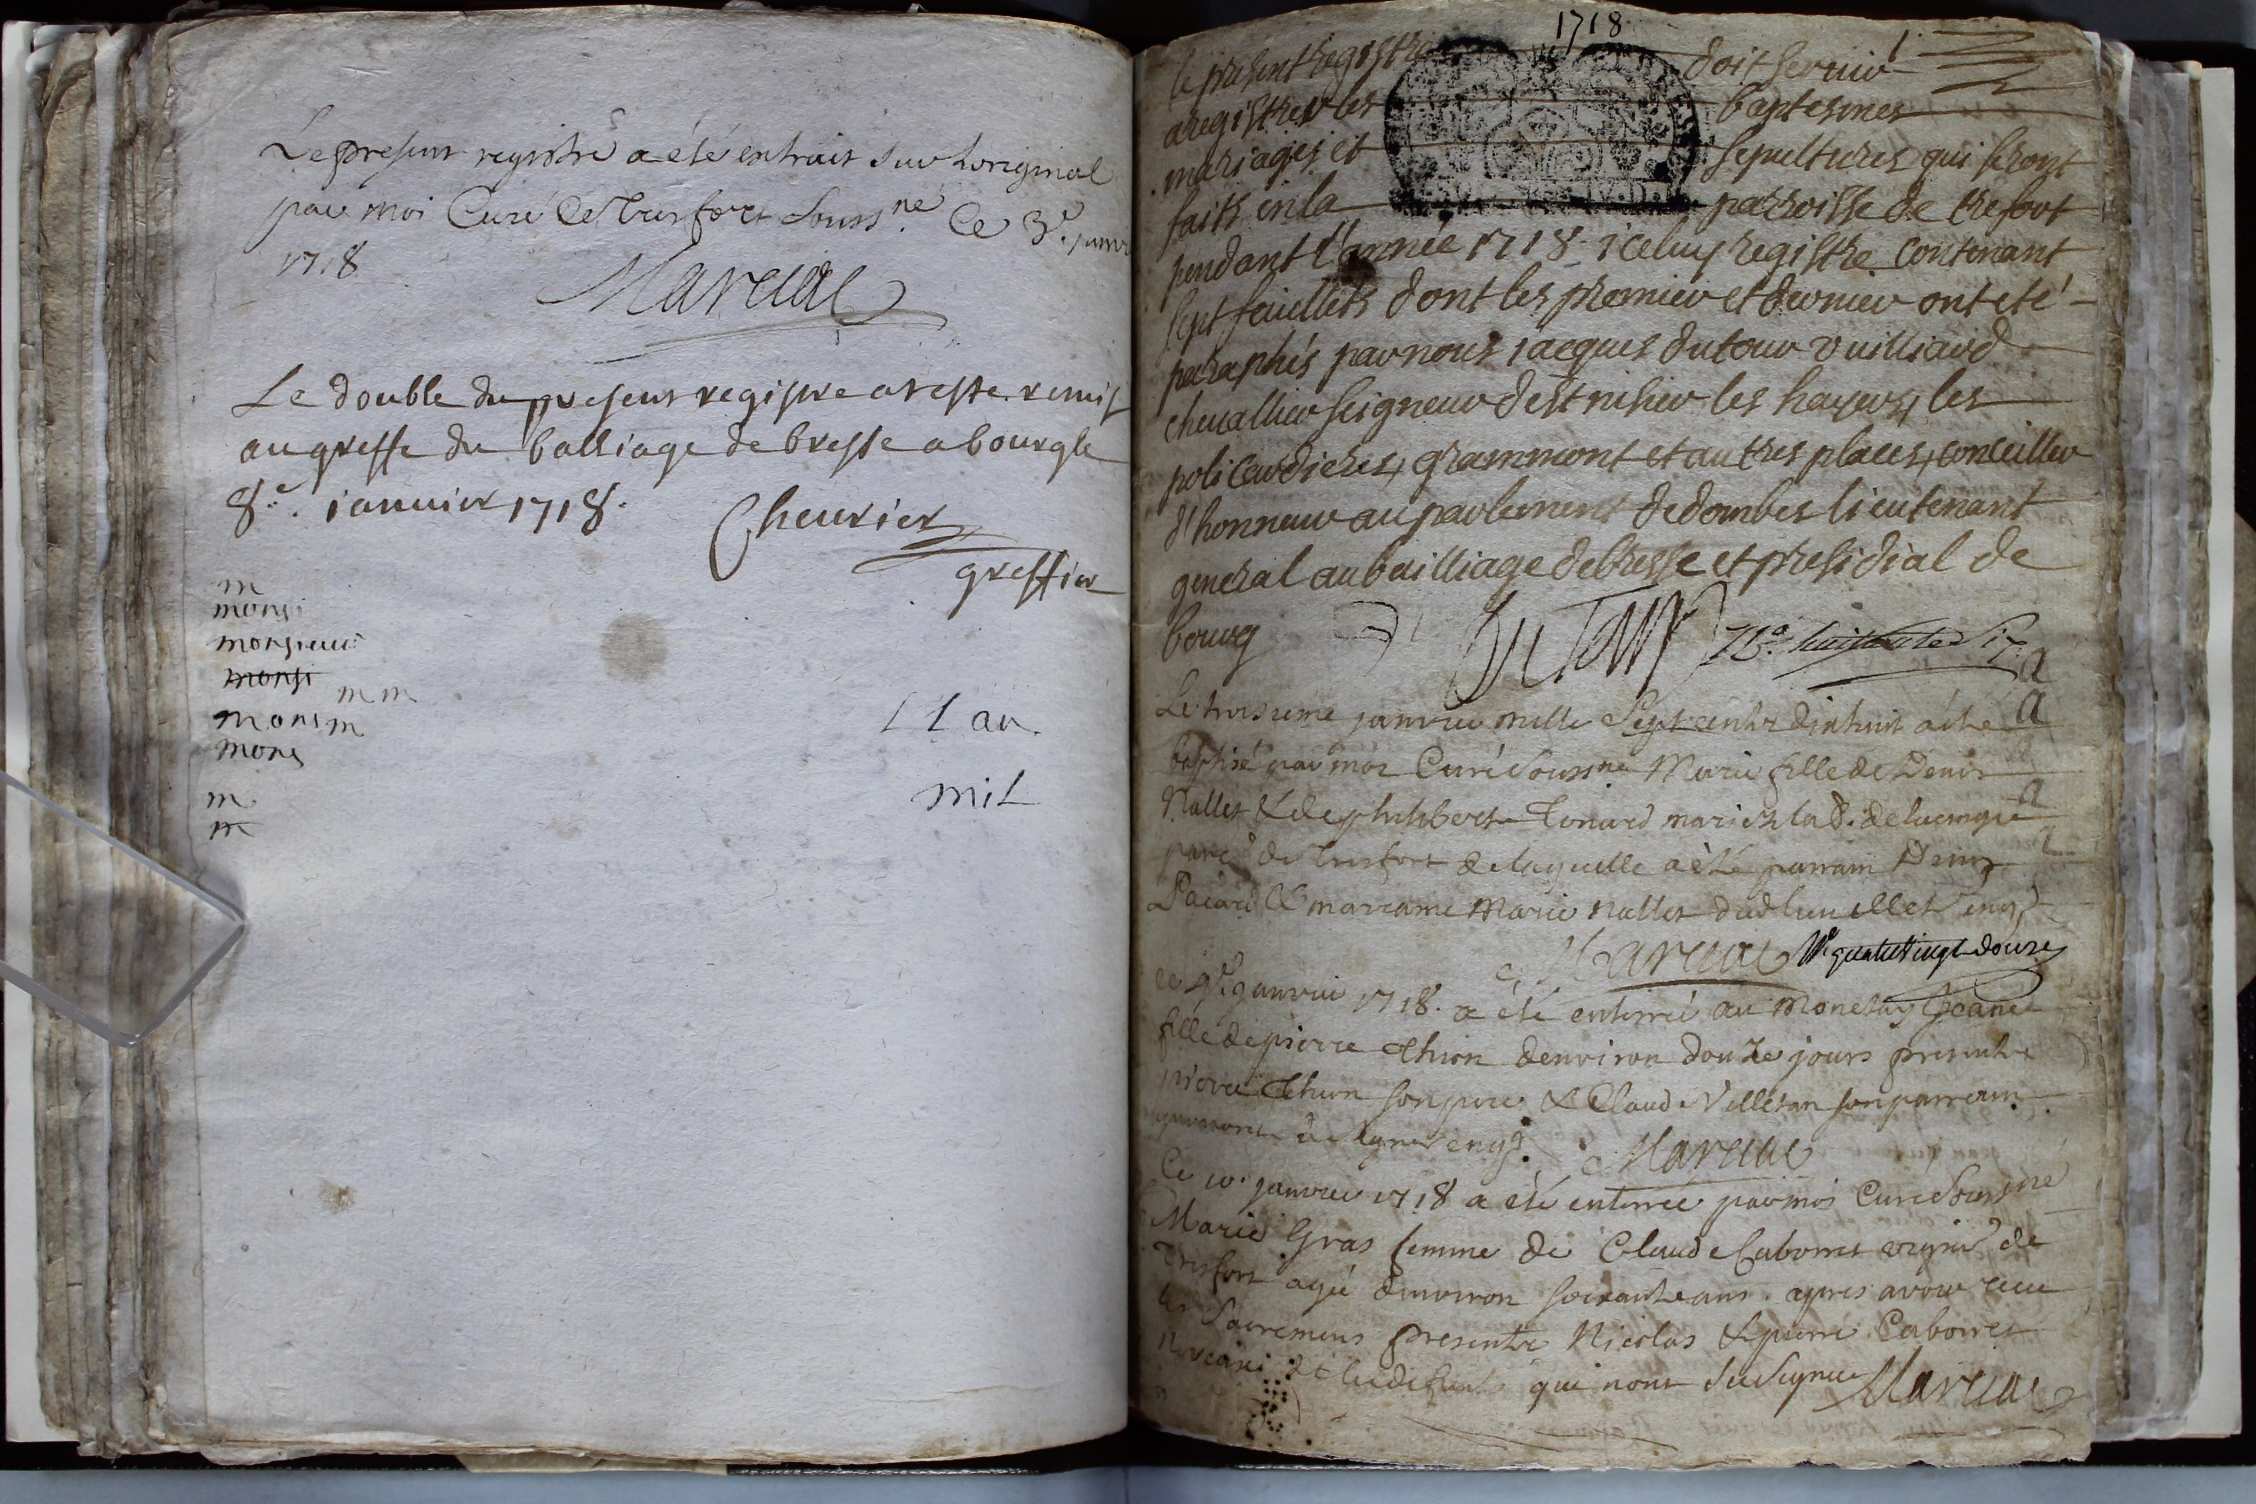 Le present registre a été extrait sur loriginal
par moi Curé de Tresfort souss.né Ce 3e janv
1718
Maréchal
Le double du present registre a reste remis
au greffe du balliage de bresse a bourg le
8e. ianuier 1718.
Cheurier
greffier
m
monsi
monsieur
monsi
m m
mons m
mons
m
m
L L au
mil
1718
le present registre doit servir
a registrer les baptesmes
mariages et sepultures qui seront
faits en la parroisse de trefort
pendant l'année 1718 iceluy registre contenant
sept feuillets dont les premier et dernier ont eté
paraphés par nous iacques dutour vuilliard
cheuallier seigneur de st nisier les hayes, les
policardieres, grammont et autres places, conseiller
d'honneur au parlement de dombes lieutenant
general au bailliage de bresse et presidial de
bourg Dutour
Le troisieme janvier mille sept cents dixhuit a été
baptisé par moi Curé souss.né Marie fille de Denis
Nallet & de philiberte mariez
parr. de Tresfort de laquelle a été parrain Denis
Pacard & marraine Marie Nallet
Maréchal N. quatrevingt douze
Le 9e janvier 1718. a été enterré au Monetay Jeane
fille de pierre Thion denviron douze jours presents
pierre Thion son pere & Claude Villetan son parrain
Maréchal
Ce 10. janvier 1718 a été enterrée par moi Curé souss.né
Marie Gras femme de Claude Caborret vigner de
Tresfort agée denviron soixante ans apres avoir receu
les Sacremens presents Nicolas & pierre Caborret
qui nont su signer Maréchal